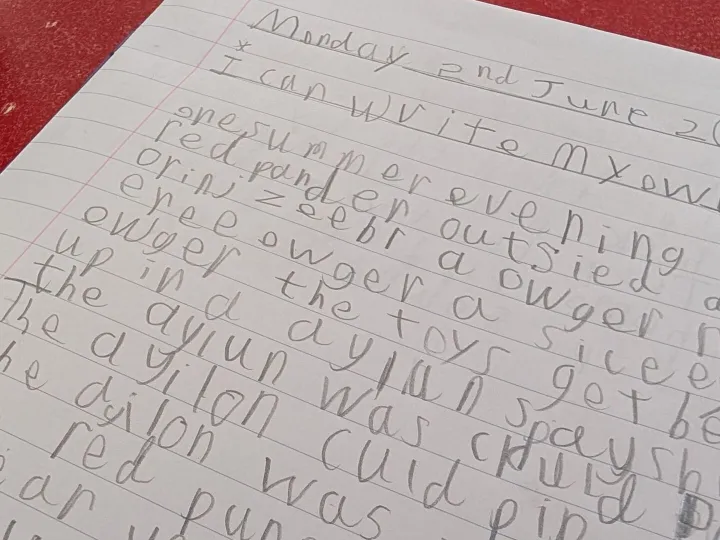 Monday 2nd June 20
x
I can write my own
one summer evening
red pander outsied a
orinj zeebr a owger r
eree owger a sicee
owger the toys get be
up in a aylan spaysh
the aylun was could
The ayilon culd pind
he ailon was
red pun
an